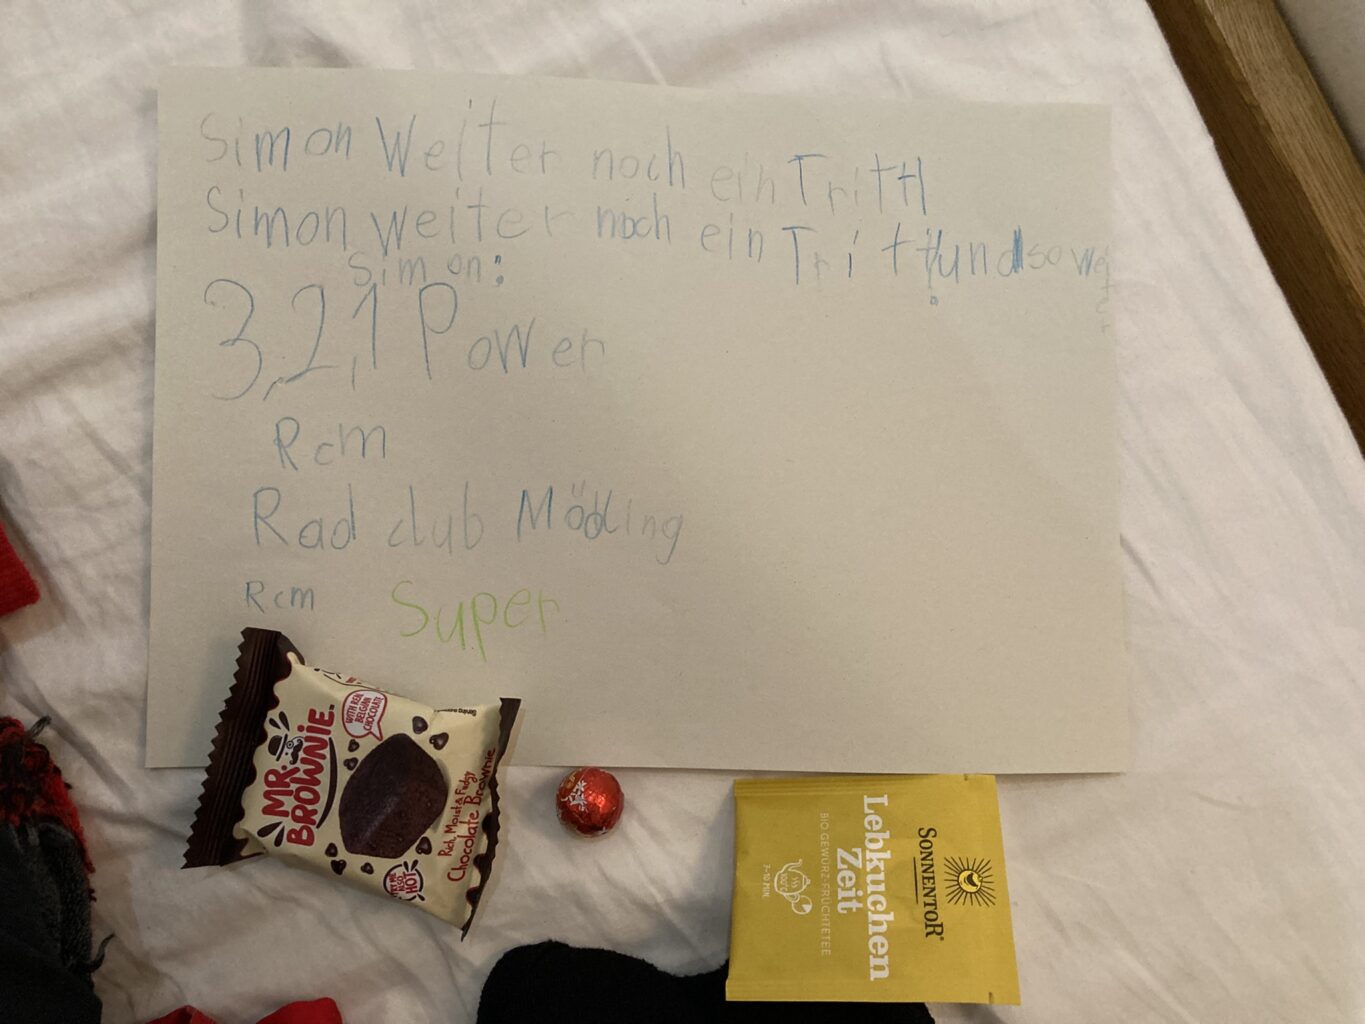 Simon Weiter noch ein Tritt!
Simon weiter noch ein Tritt! und so weiter
Simon:
3,2,1 Power
Rcm
Rad club Mödling
Rcm Super
MR.
BROWNIE
WITH REAL
BELGIAN
CHOCOLATE
Rich, Moist & Fudgy
Chocolate Brownie
TRY ME
ALSO
HOT
SONNENTOR®
Lebkuchen
Zeit
BIO-GEWÜRZ-FRÜCHTETEE
100°C
7-10 MIN